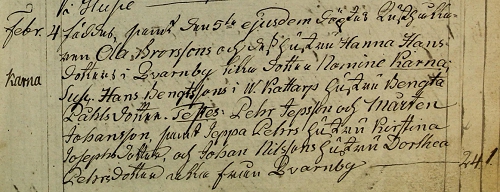 Febr. 4 föddes, samt den 5te ejusdem döptes
ren Ola Brorssons och dess hustru Hanna Hans
dotters i Qvarnby lilla dotter Nomine Karna
Karna Susc. Hans Bengtssons i W. Kattarp hustru Bengta
Påhls dotter. Testes: Pehr Jepsson och Mårten
Johansson, samt Jeppa Pehrs hustru Kirstina
Josephs dotter, och Johan Nilssons hustru Dorthea
Pehrs dotter alla från Qvarnby 24 1